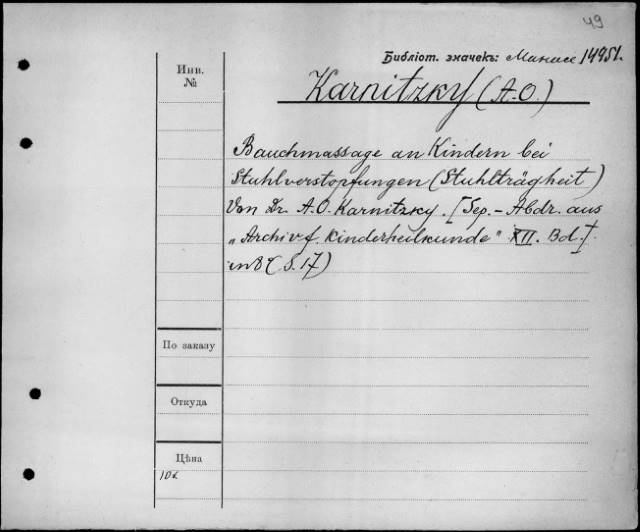 49
Библіот. значекъ: Манасе 14951.
Инв.
№
Karnitzky (A.O.)
Bauchmassage an Kindern bei
Stuhlverstopfungen (Stuhlträgheit)
Von Dr. A.O. Karnitzky. [Sep.-Abdr. aus
„Archiv f. Kinderheilkunde" XII. Bd.].
in 8° (S. 17)
По заказу
Откуда
Цѣна